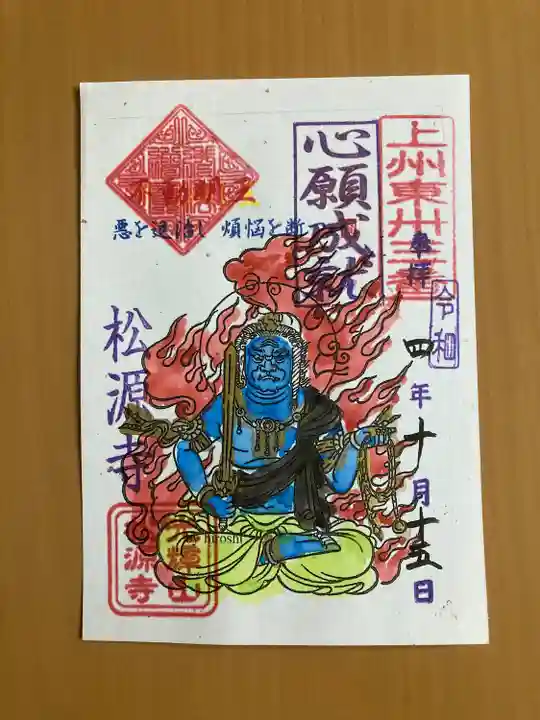 上州東卅三番
奉拝
令和
四年十月十五日
心願成就
不動明王
悪を退治し 煩悩を断
松源寺
源寺
hiroshi